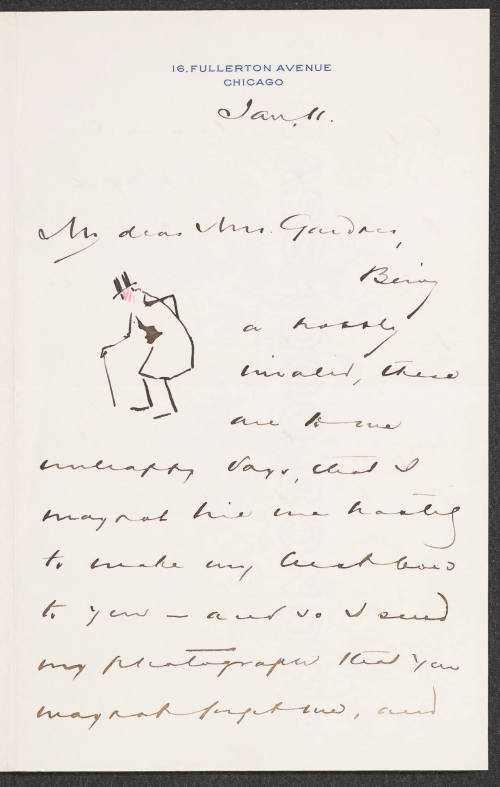 16. FULLERTON AVENUE
CHICAGO
Jan, 11.
My dear Mrs. Gardner,
Being
a
invalid, these
are to me
unhappy days, that I
may not hie me hastily
to make my best bow
to you — and so I send
my photograph that you
may not forget me, and